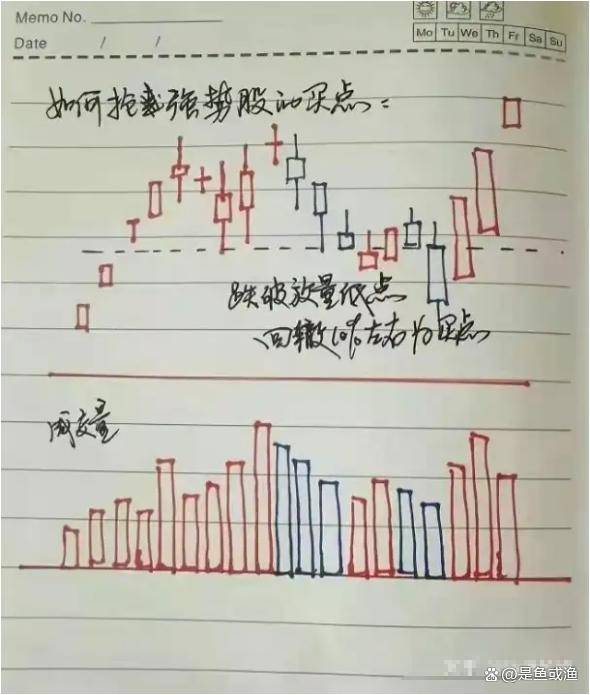 Memo No.
Mo Tu We Th Fr Sa Su
Date / /
如何抢截强势股的买点：
跌破放量低点
回撤10%左右为买点
成交量
@是鱼或渔